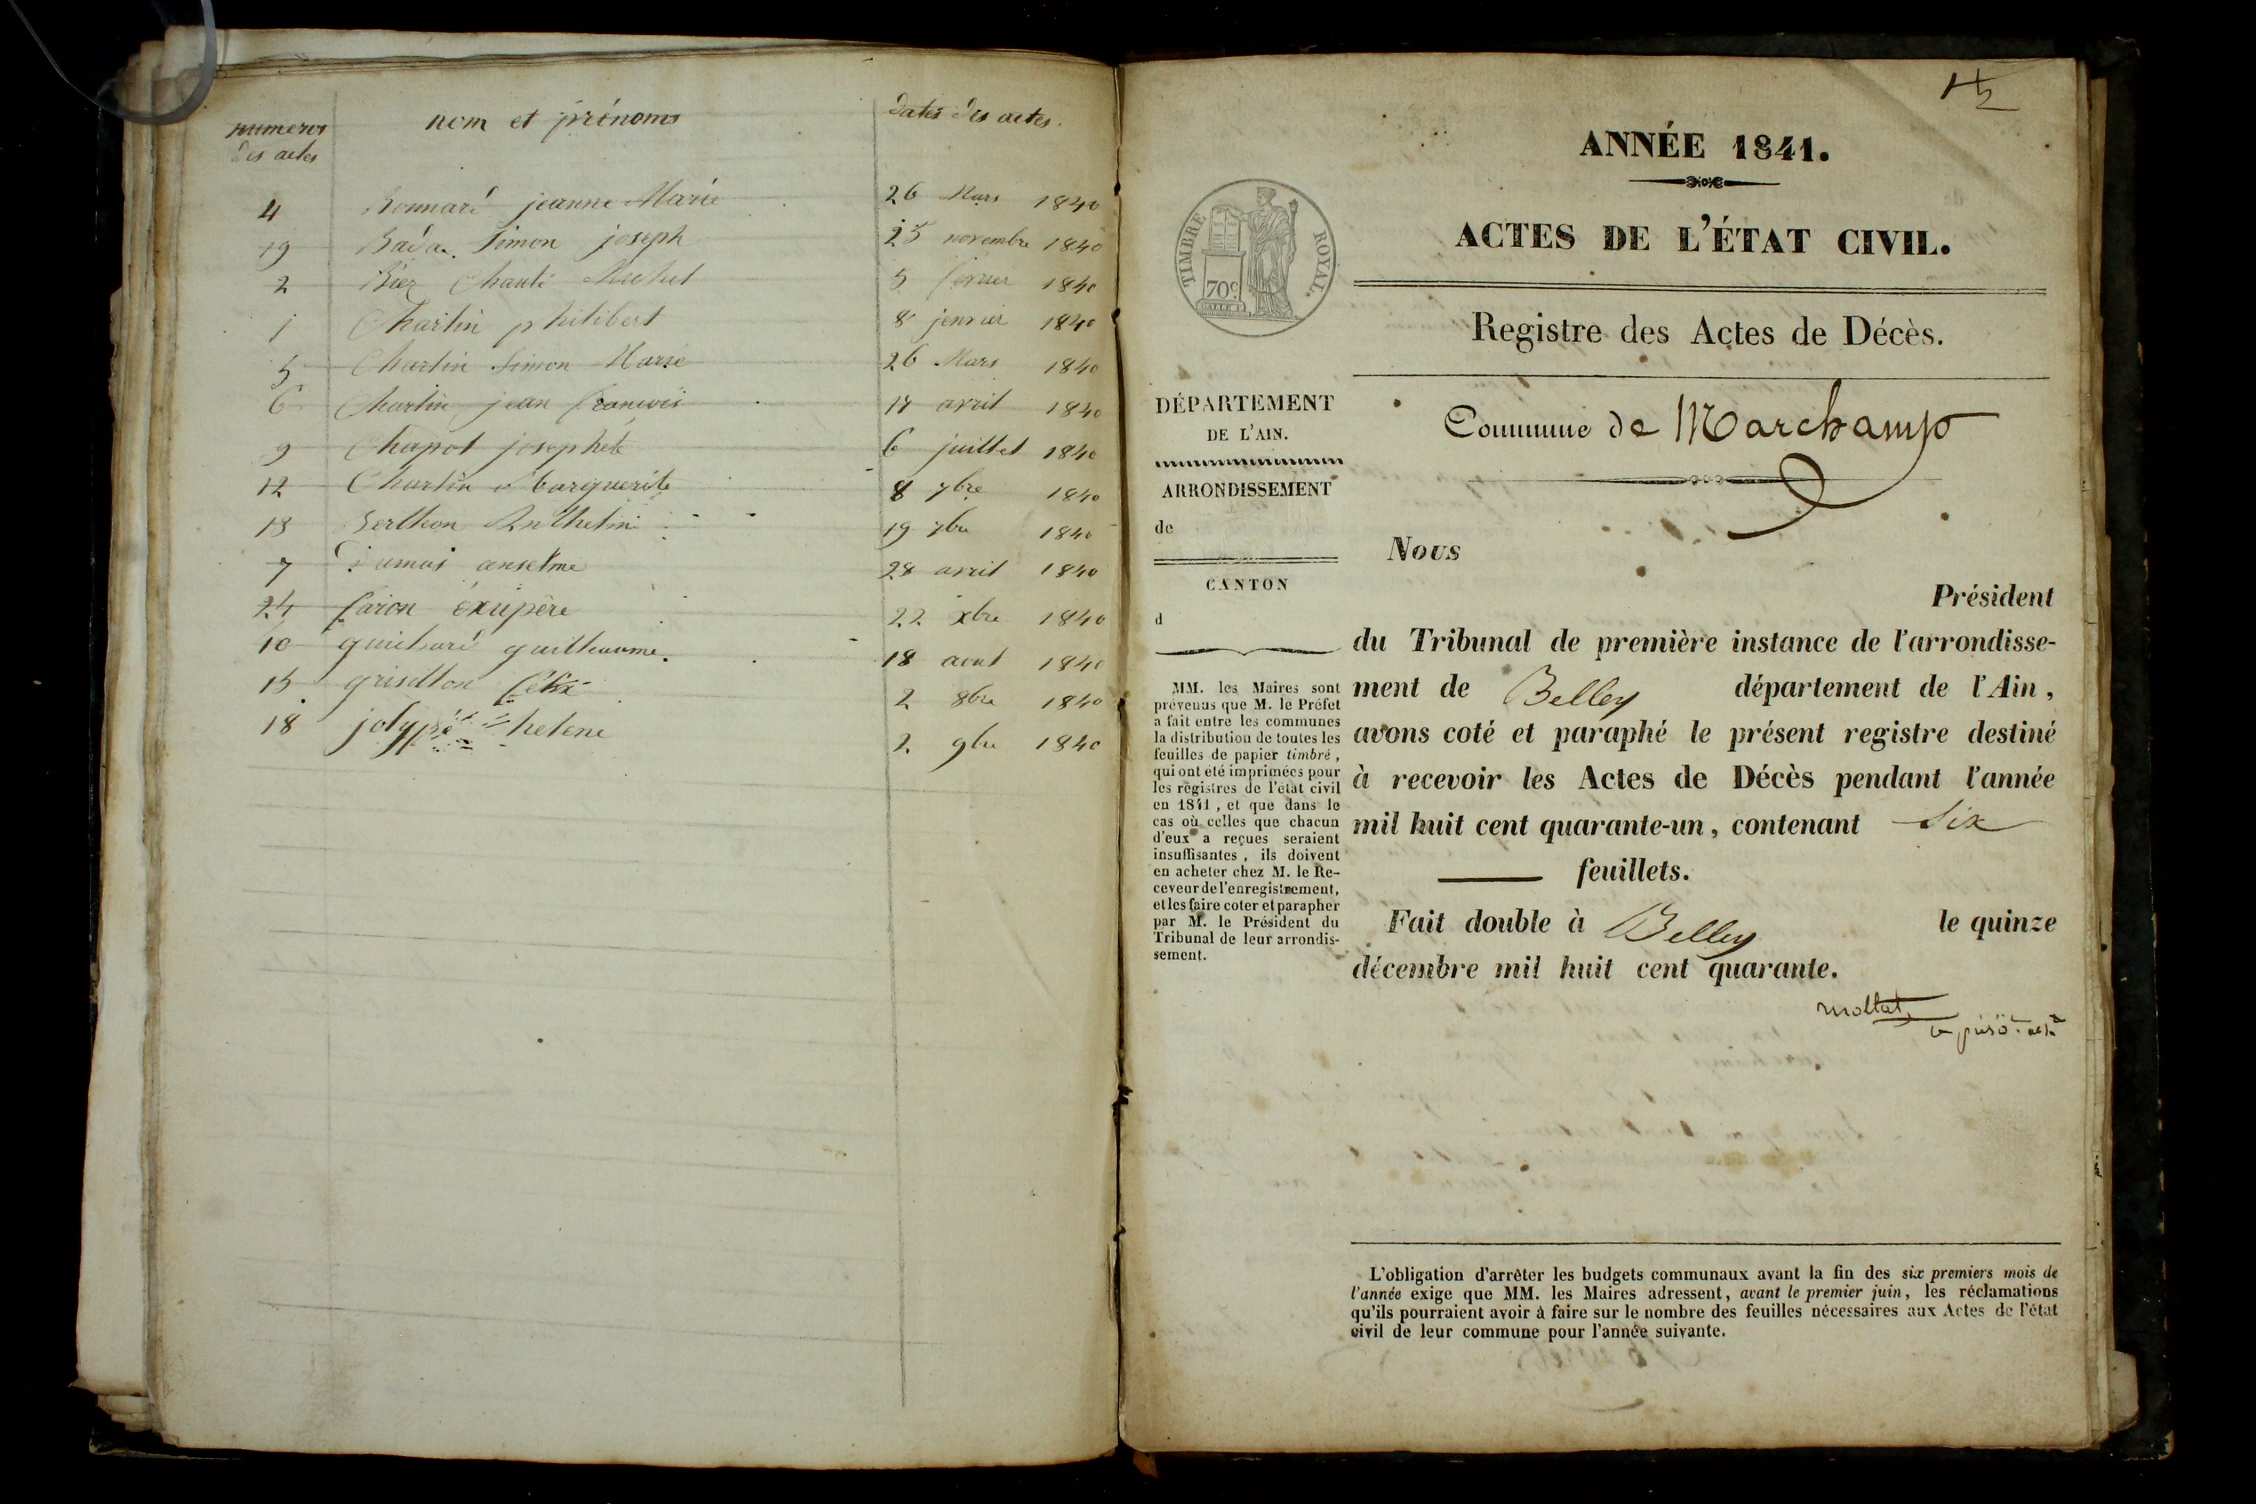 numeros des actes nom et prénoms dates des actes.
4 Bonnard jeanne Marie 26 Mars 1840
19 Simon joseph 25 novembre 1840
2 5 fevrier 1840
1 Charlin philibert 8 jenvier 1840
5 Charlin Simon Marie 26 Mars 1840
6 Charlin jean francois avril 1840
9 Chapot josephete 6 juillet 1840
12 Charlin Marguerite 8 7bre 1840
13 Berthon Anthelme 19 7bre 1840
7 Dumas anselme 28 avril 1840
24 faron éxupère 22 xbre 1840
10 guichard guilhaume. 18 aout 1840
15 félix 2 8bre 1840
18 helene 2 9bre 1840
ANNÉE 1841.
ACTES DE L'ÉTAT CIVIL.
TIMBRE ROYAL.
70c
Registre des Actes de Décès.
DÉPARTEMENT
DE L'AIN.
ARRONDISSEMENT
de
CANTON
d
MM. les Maires sont
prévenus que M. le Préfet
a fait entre les communes
la distribution de toutes les
feuilles de papier timbré,
qui ont été imprimées pour
les registres de l'état civil
en 1841, et que dans le
cas où celles que chacun
d'eux a reçues seraient
insuffisantes, ils doivent
en acheter chez M. le Re-
ceveur de l'enregistrement,
et les faire coter et parapher
par M. le Président du
Tribunal de leur arrondis-
sement.
Commune de Marchamp
Nous
Président
du Tribunal de première instance de l'arrondisse-
ment de Belley département de l'Ain,
avons coté et paraphé le présent registre destiné
à recevoir les Actes de Décès pendant l'année
mil huit cent quarante-un, contenant Six
feuillets.
Fait double à Belley le quinze
décembre mil huit cent quarante.
mollat
L'obligation d'arrêter les budgets communaux avant la fin des six premiers mois de
l'année exige que MM. les Maires adressent, avant le premier juin, les réclamations
qu'ils pourraient avoir à faire sur le nombre des feuilles nécessaires aux Actes de l'état
civil de leur commune pour l'année suivante.